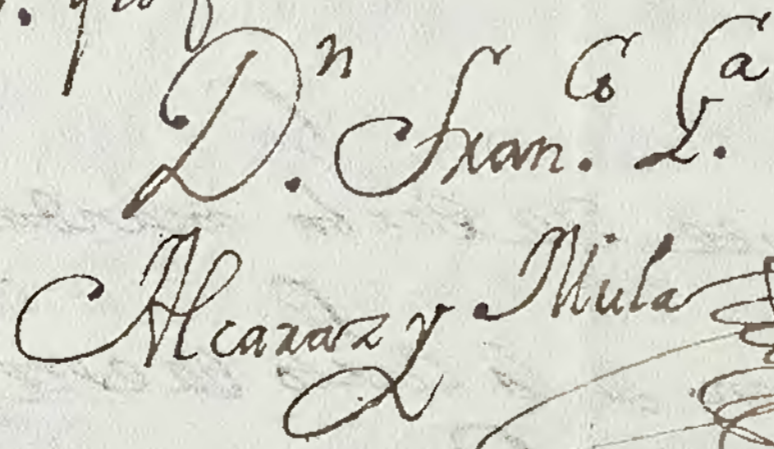 Dn. Franco. Ga.
Alcaraz y Mula